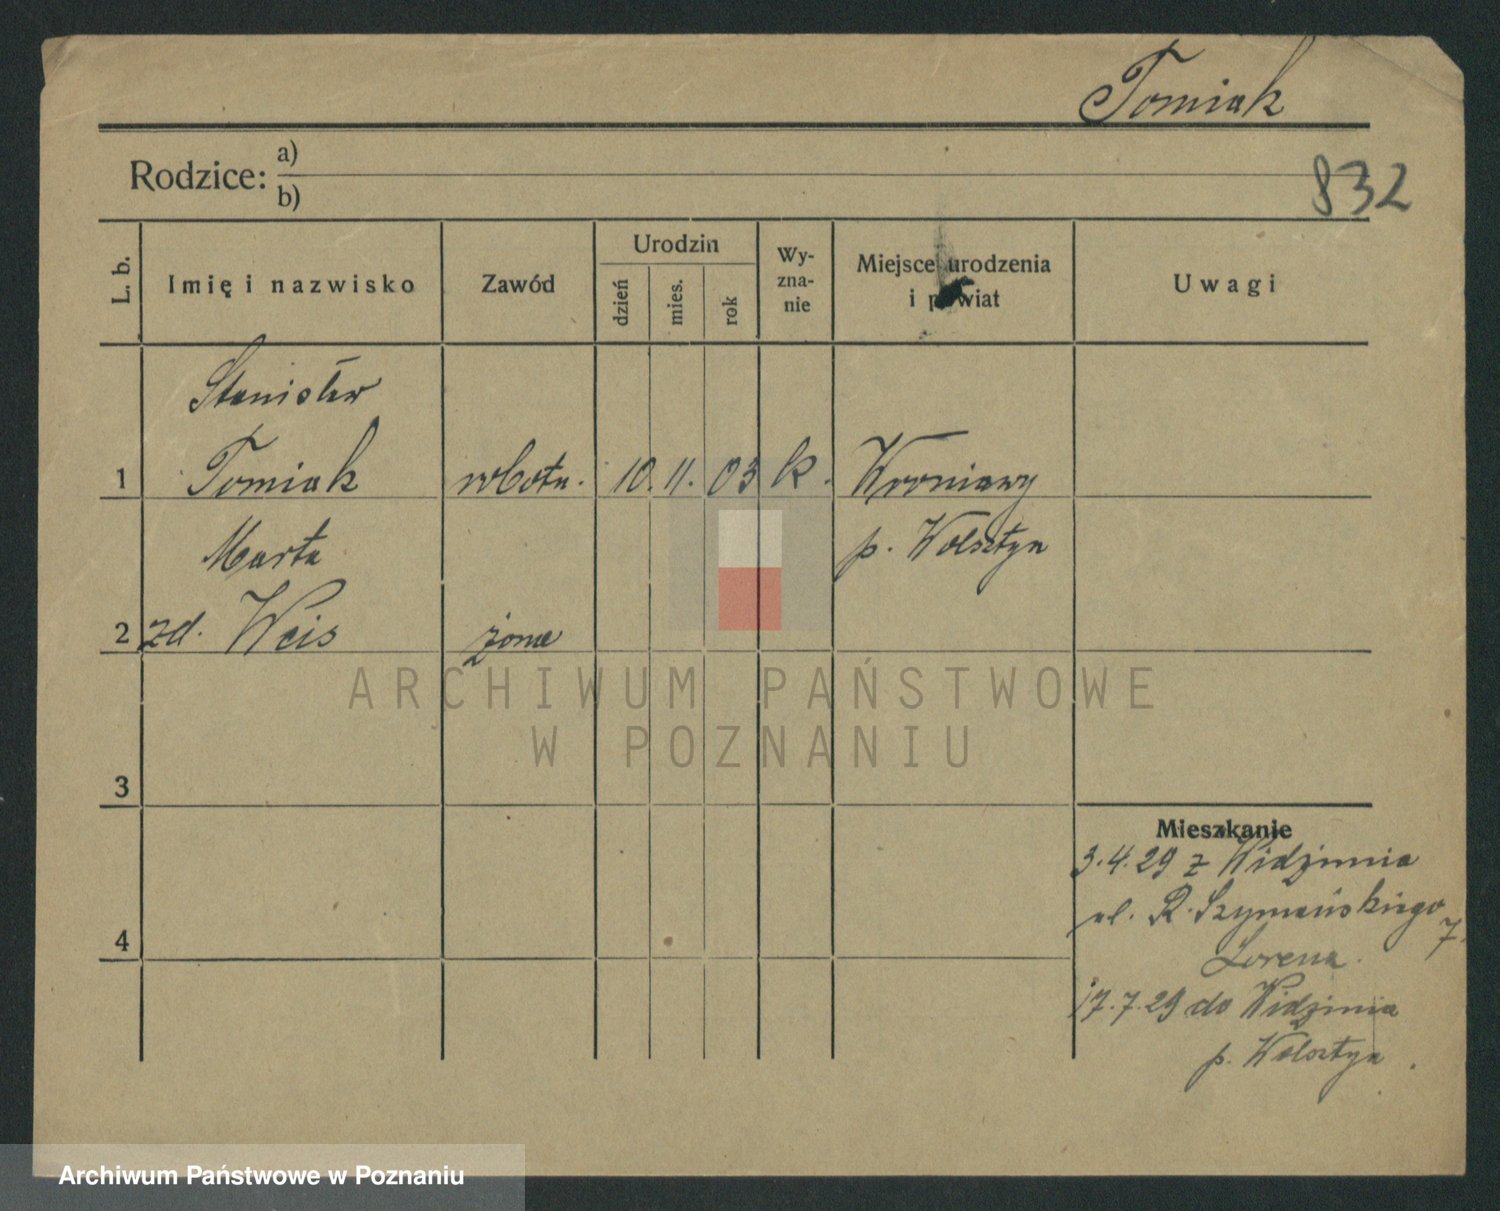 Tomiak
Rodzice: a)
b)
832
L. b.
Imię i nazwisko
Zawód
Urodzin
dzień
mies.
rok
Wy-
zna-
nie
Miejsce urodzenia
i powiat
Uwagi
Stanisław
1 Tomiak robotn. 10. 11. 03 k. Wroniawy
Marta p. Wolsztyn
2 zd. Weis żona
ARCHIWUM PAŃSTWOWE
W POZNANIU
3
4
Mieszkanie
3.4.29 z Widzimia
ul. R. Szymańskiego 7
Lorenz.
17.7.29 do Widzimia
p. Wolsztyn.
Archiwum Państwowe w Poznaniu